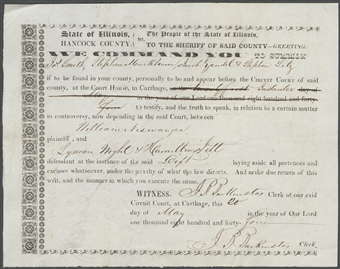 State of Illinois, } ss. The People of the State of Illinois,
HANCOCK COUNTY. TO THE SHERIFF OF SAID COUNTY—GREETING:
WE COMMAND YOU TO SUMMON
if to be found in your county, personally to be and appear before the CIRCUIT COURT of said
county, at the Court House, in Carthage,
in the year of our Lord one thousand eight hundred and forty
to testify, and the truth to speak, in relation to a certain matter
in controversy, now depending in the said Court, between
William
plaintiff, and
Lyman Wight &
defendant at the instance of the said Deft laying aside all pretences and
excuses whatsoever, under the penalty of what the law directs. And make due return of this
writ, and the manner in which you execute the same.
WITNESS, J. B. Backenstos Clerk of our said
Circuit Court, at Carthage, this 20
day of May in the year of Our Lord
one thousand eight hundred and forty-four
J. B. Backenstos Clerk,